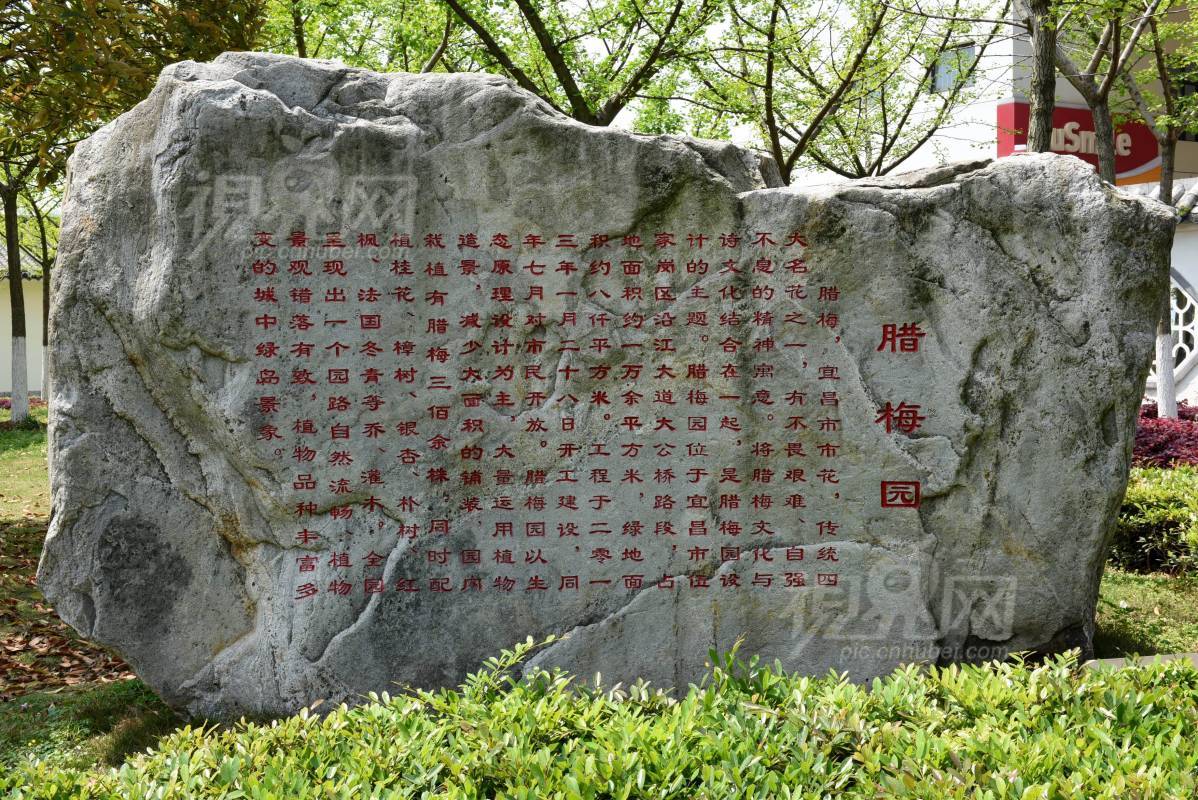 腊梅园
腊梅，宜昌市市花，传统四
大名花之一，有不畏艰难、自强
不息的精神寓意。将腊梅文化与
诗文化结合在一起，是腊梅园设
计的主题。腊梅园位于宜昌市伍
家岗区沿江大道大公桥路段，占
地面积约一万余平方米，绿地面
积约八仟平方米。工程于二零一
三年一月二十八日开工建设，同
年七月对市民开放。腊梅园以生
态原理设计为主，大量运用植物
造景，减少大面积的铺装，园内
栽植有腊梅三佰余株，同时配
植桂花、樟树、银杏、朴树、红
枫、法国冬青等乔、灌木。全园
呈现出一个园路自然流畅、植物
景观错落有致，植物品种丰富多
变的城中绿岛景象。
uSmile
视界网
pic.cnhubei.com
视界网
pic.cnhubei.com